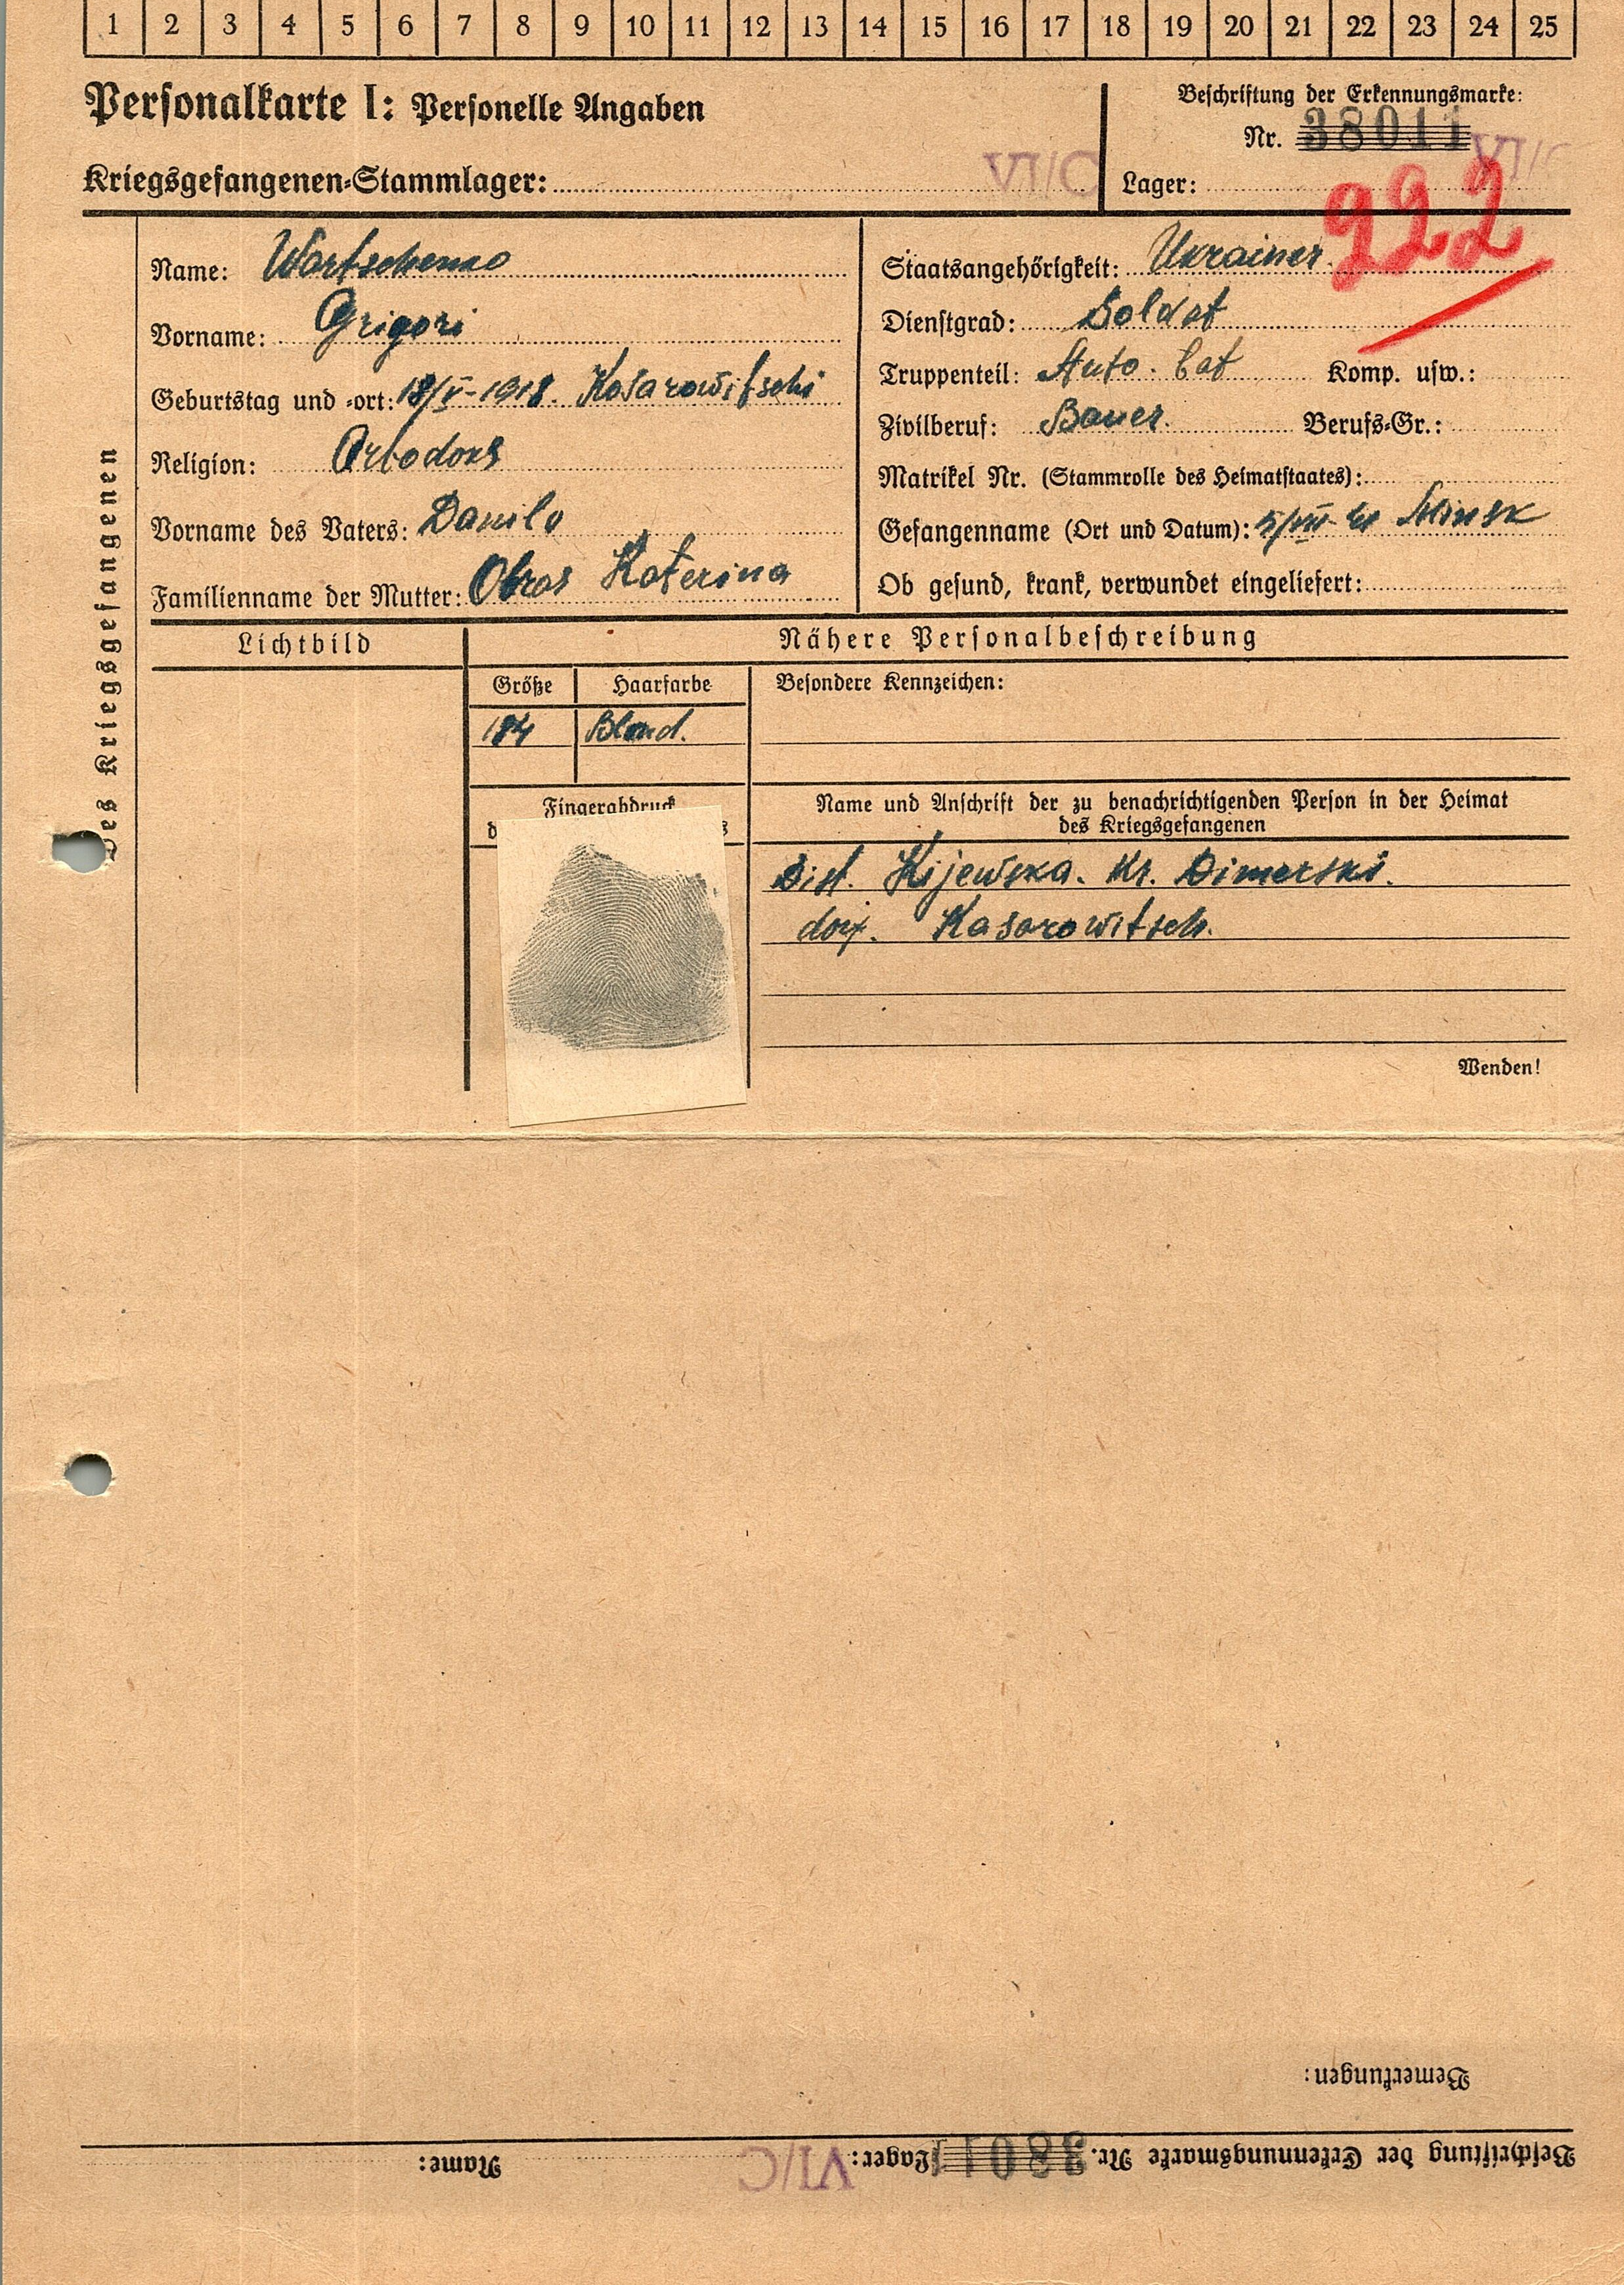 1 2 3 4 5 6 7 8 9 10 11 12 13 14 15 16 17 18 19 20 21 22 23 24 25
Personalkarte I: Personelle Angaben
Beschriftung der Erkennungsmarke:
Nr. 38011
Kriegsgefangenen-Stammlager: VI/C
Lager: VI/C
222
des Kriegsgefangenen
Name: Wartschenko
Vorname: Grigori
Geburtstag und -ort: 18/V-1918. Kosarowitschi
Religion: Ortodoks
Vorname des Vaters: Danilo
Familienname der Mutter: Obras Katerina
Staatsangehörigkeit: Ukrainer
Dienstgrad: Soldat
Truppenteil: Auto. bat Komp. usw.:
Zivilberuf: Bauer. Berufs-Gr.:
Matrikel Nr. (Stammrolle des Heimatstaates):
Gefangenname (Ort und Datum): 5/VII-41 Minsk
Ob gesund, krank, verwundet eingeliefert:
Lichtbild
Nähere Personalbeschreibung
Größe Haarfarbe Besondere Kennzeichen:
184 Blond.
Fingerabdruck
Name und Anschrift der zu benachrichtigenden Person in der Heimat
des Kriegsgefangenen
Dist. Kijewska. Kr. Dimerski.
dorf. Kasarowitsch.
Wenden!
Bemerkungen:
Beschriftung der Erkennungsmarke Nr. 38011 Lager: VI/C Name: